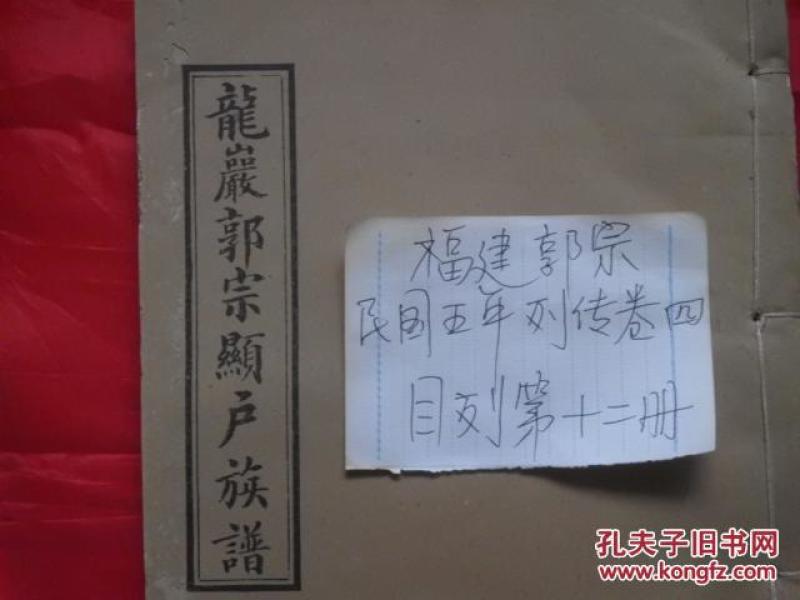 龍巖郭宗顯戶族譜
福建郭宗
民国五年列传卷四
目列第十二册
孔夫子旧书网
www.kongfz.com